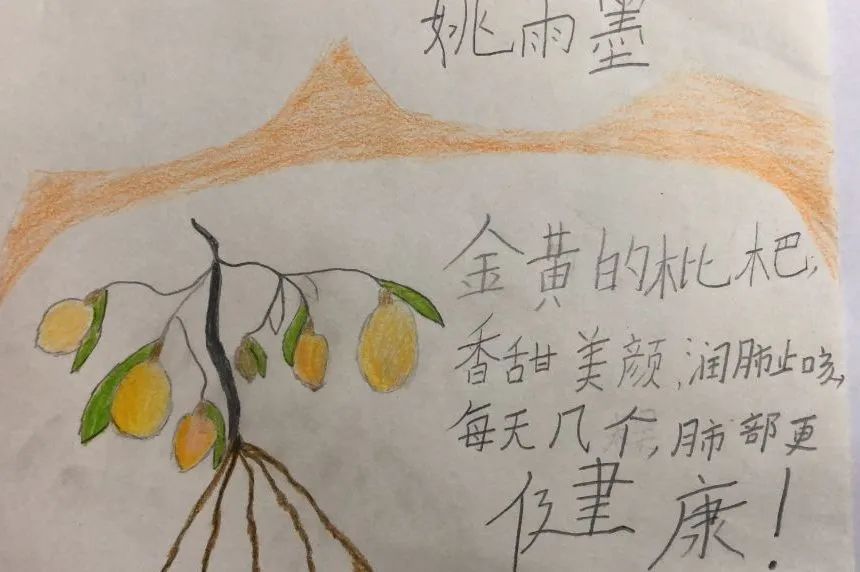 姚雨墨
金黄的枇杷,
香甜美颜,润肺止咳,
每天几个,肺部更
健康!